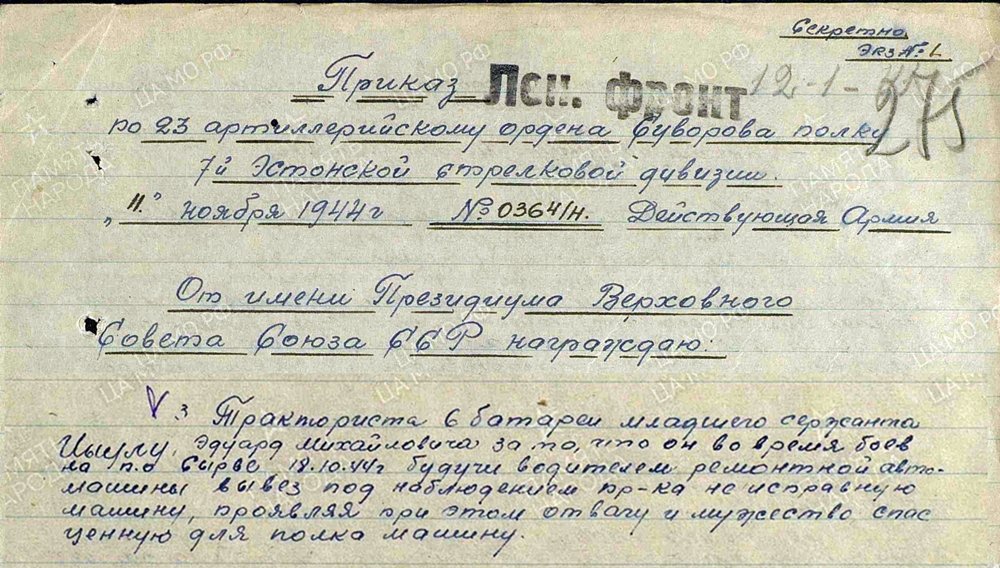 Секретно
Экз № 1
Приказ Лен. фронт 12-1-
275
по 23 артиллерийскому ордена Суворова полку
7й Эстонской стрелковой дивизии.
"11." ноября 1944г №0364/н. Действующая Армия
От имени Президиума Верховного
Совета Союза ССР награждаю:
3. Тракториста 6 батареи младшего сержанта
Эдуард Михайловича за то, что он во время боев
на п.о Сырве 18.10.44г будучи водителем ремонтной авто-
машины вывез под наблюдением пр-ка не исправную
машину, проявляя при этом отвагу и мужество спас
ценную для полка машину.